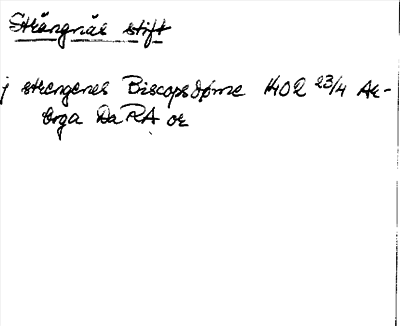 Strängnäs stift
j strengenes Biscopsdøme 1402 23/4 Ae-
borga DaRA or